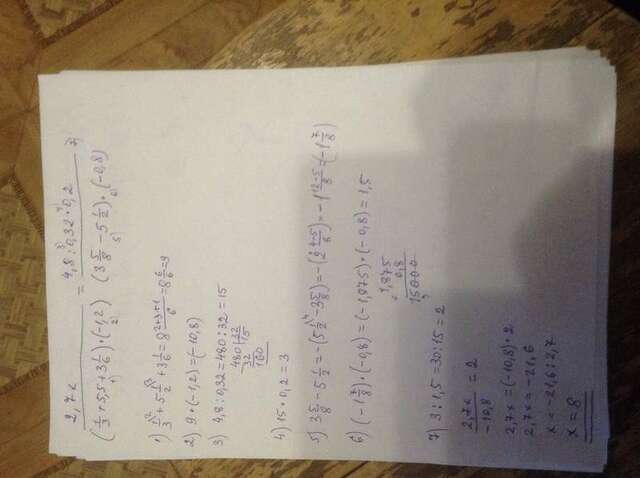 2,7x / (1/3 + 5,5 + 3 1/6) · (-1,2) = 4,8 : 0,32 · 0,2 / (3 5/8 - 5 1/2) · (-0,8)
1) 1/3 + 5 1/2 + 3 1/6 = 8 2+3+1/6 = 8 6/6 = 9
2) 9 · (-1,2) = (-10,8)
3) 4,8 : 0,32 = 480 : 32 = 15
480 | 32
32 15
160
4) 15 · 0,2 = 3
5) 3 5/8 - 5 1/2 = -(5 1/2 - 3 5/8) = -(2 4-5/8) = -1 12-5/8 = (-1 7/8)
6) (-1 7/8) · (-0,8) = (-1,875) · (-0,8) = 1,5
1,875
0,8
1,5000
7) 3 : 1,5 = 30 : 15 = 2
2,7x / -10,8 = 2
2,7x = (-10,8) · 2
2,7x = -21,6
x = -21,6 : 2,7
x = 8